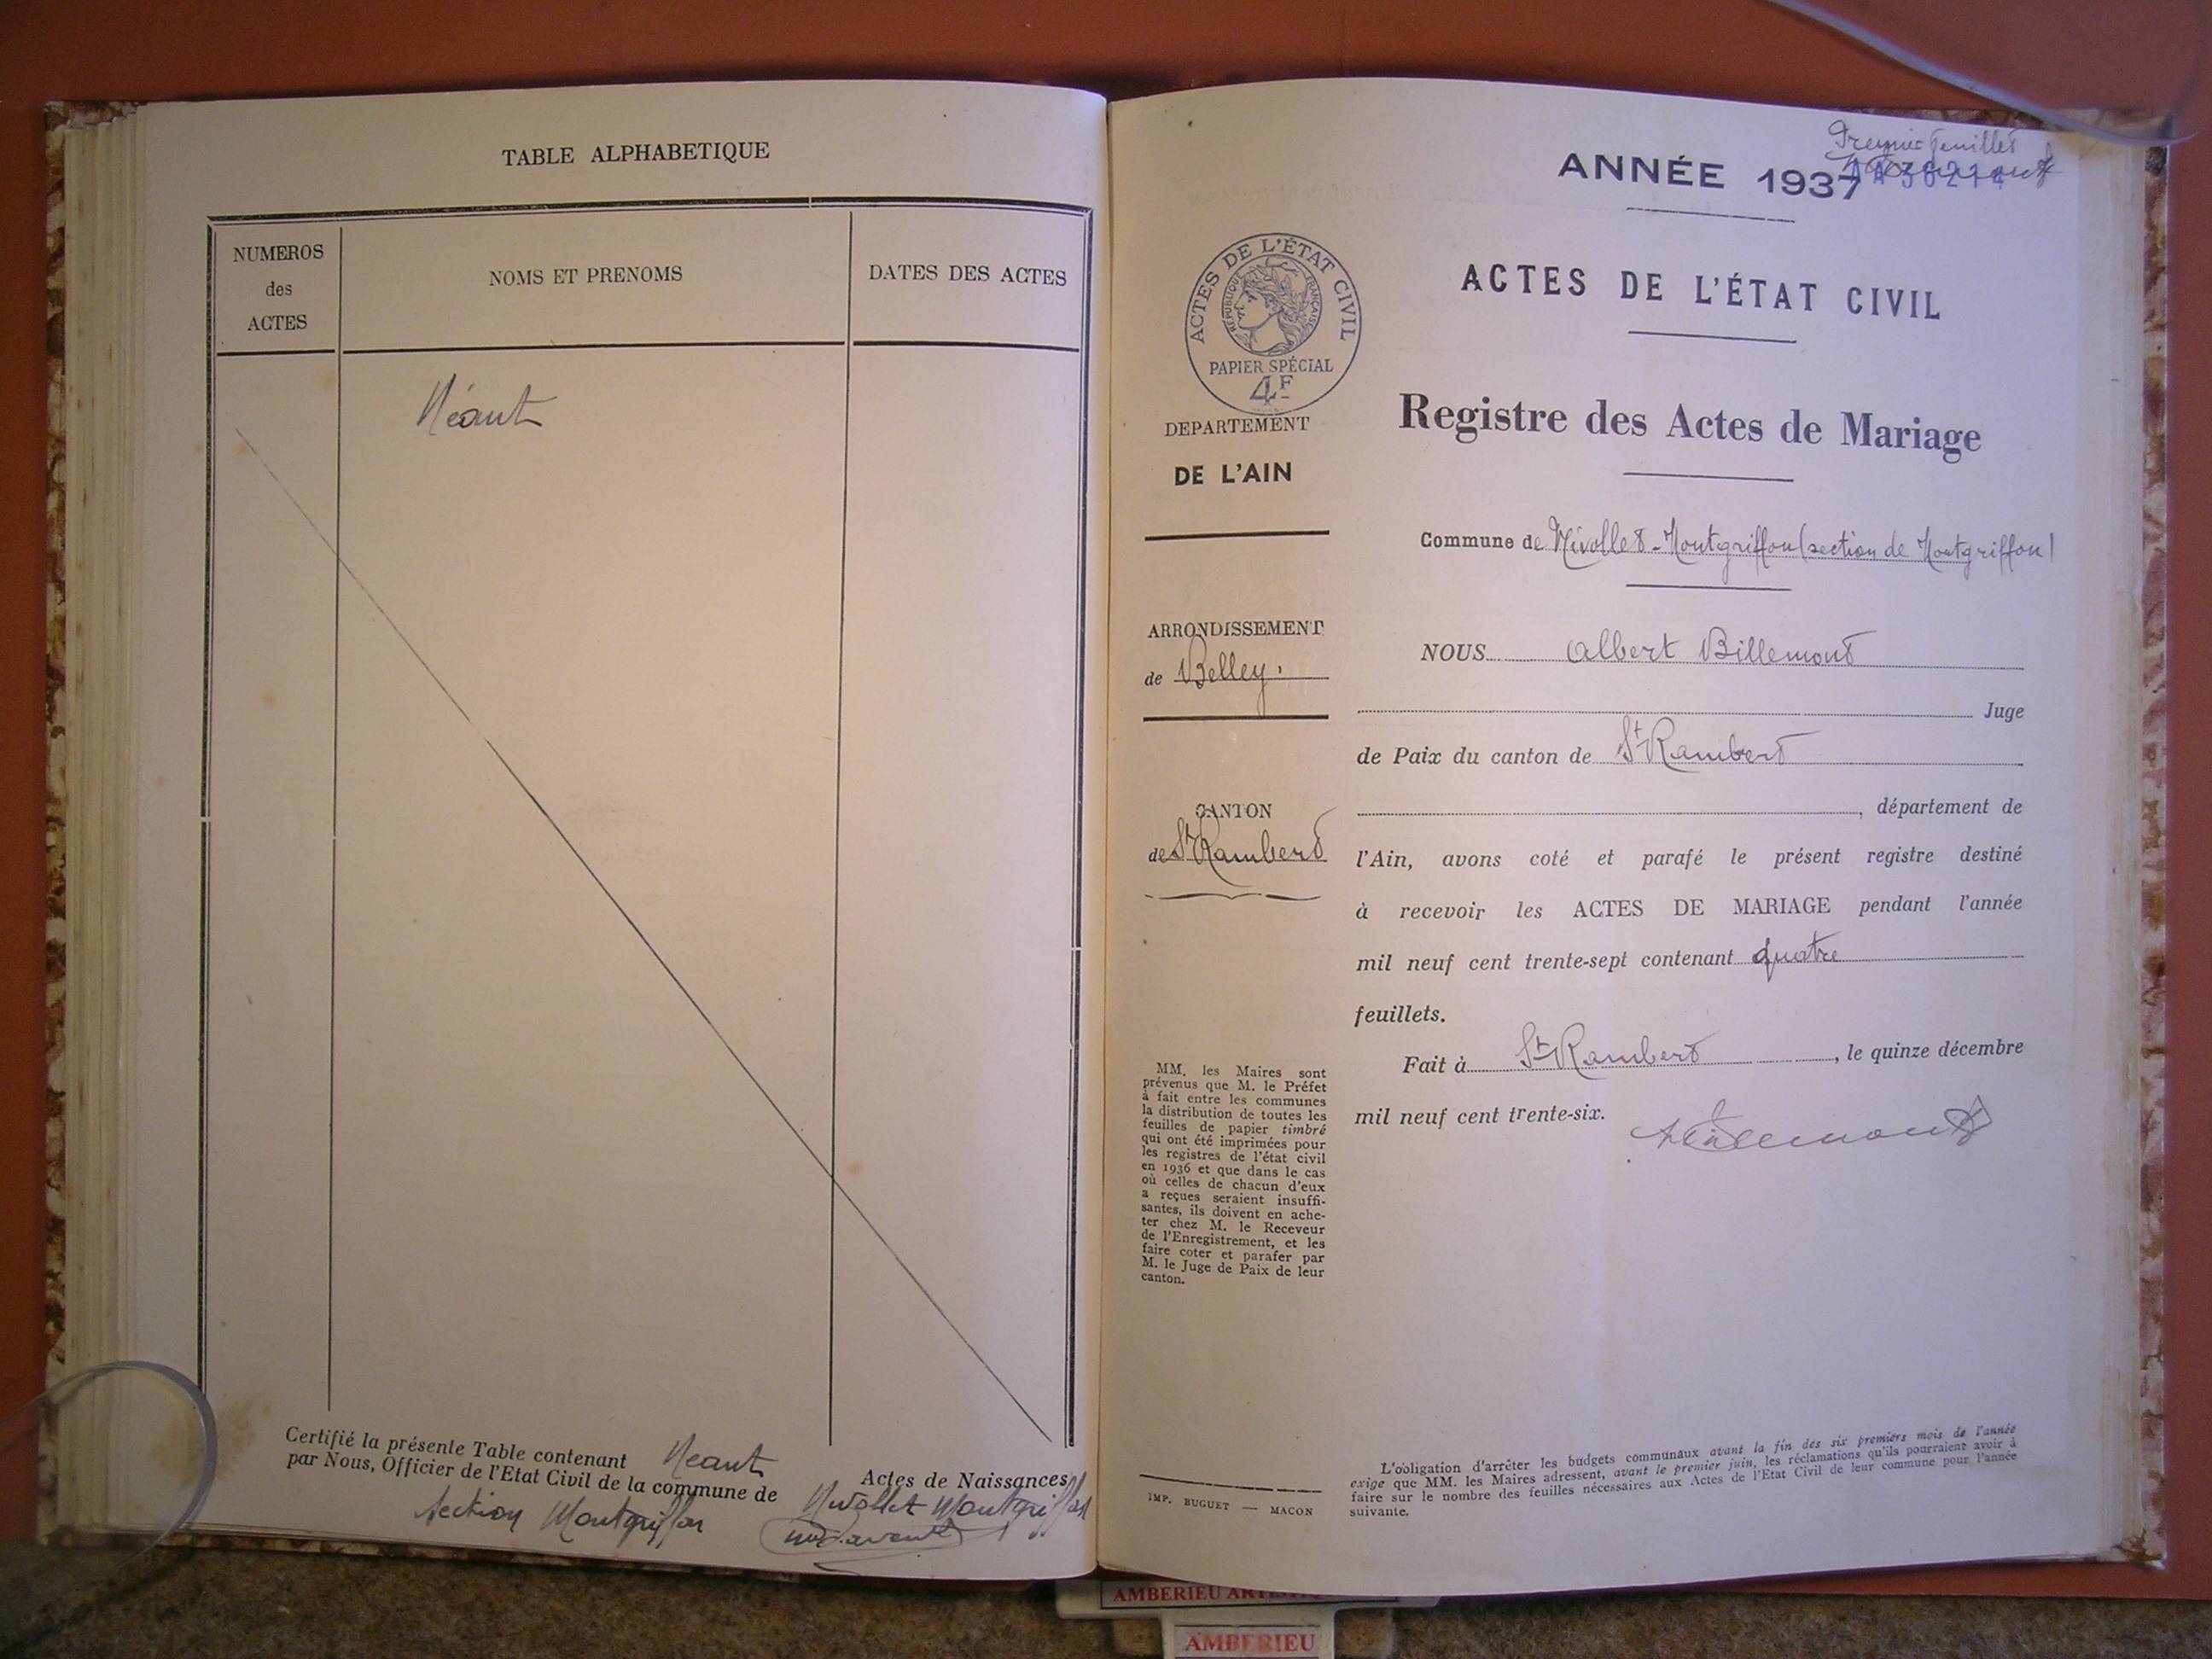 TABLE ALPHABETIQUE
NUMEROS
des
ACTES
NOMS ET PRENOMS
DATES DES ACTES
Néant
Certifié la présente Table contenant Néant Actes de Naissances
par Nous, Officier de l'Etat Civil de la commune de Nivollet Montgriffon
section Montgriffon
Premier feuillet
ANNÉE 1937
ACTES DE L'ÉTAT CIVIL
RÉPUBLIQUE FRANÇAISE
PAPIER SPÉCIAL
4F
DEPARTEMENT
DE L'AIN
ARRONDISSEMENT
de Belley.
CANTON
de St Rambert
MM. les Maires sont
prévenus que M. le Préfet
à fait entre les communes
la distribution de toutes les
feuilles de papier timbré
qui ont été imprimées pour
les registres de l'état civil
en 1936 et que dans le cas
où celles de chacun d'eux
a reçues seraient insuffi-
santes, ils doivent en ache-
ter chez M. le Receveur
de l'Enregistrement, et les
faire coter et parafer par
M. le Juge de Paix de leur
canton.
IMP. BUGUET — MACON
ACTES DE L'ÉTAT CIVIL
Registre des Actes de Mariage
Commune de Nivollet-Montgriffon (section de Montgriffon)
NOUS Albert Billemont
Juge
de Paix du canton de St Rambert
, département de
l'Ain, avons coté et parafé le présent registre destiné
à recevoir les ACTES DE MARIAGE pendant l'année
mil neuf cent trente-sept contenant quatre
feuillets.
Fait à St Rambert, le quinze décembre
mil neuf cent trente-six.
L'obligation d'arrêter les budgets communaux avant la fin des six premiers mois de l'année
exige que MM. les Maires adressent, avant le premier juin, les réclamations qu'ils pourraient avoir à
faire sur le nombre des feuilles nécessaires aux Actes de l'Etat Civil de leur commune pour l'année
suivante.
AMBERIEU
AMBERIEU